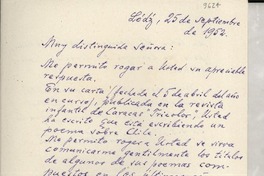 9624
Łódź, 25 de septiembre
de 1952.
Muy distinguida Señora:
Me permito rogar a Usted su apreciable
respuesta.
En su carta (fechada el 5 de abril del año
en curso), publicada en la revista
infantil de Caracas Tricolor, Usted
ha escrito que está escribiendo un
poema sobre Chile.
Me permito rogar a Usted se sirva
comunicarme gentilmente los títulos
de algunos de sus poemas com-
puestos en los